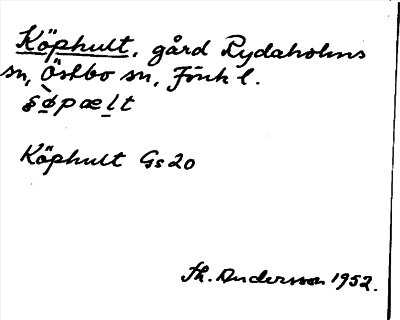 Köphult, gård Rydaholms
sn, Östbo sn, Jönk l.
Köphult Gs 20
Th. Andersson 1952.